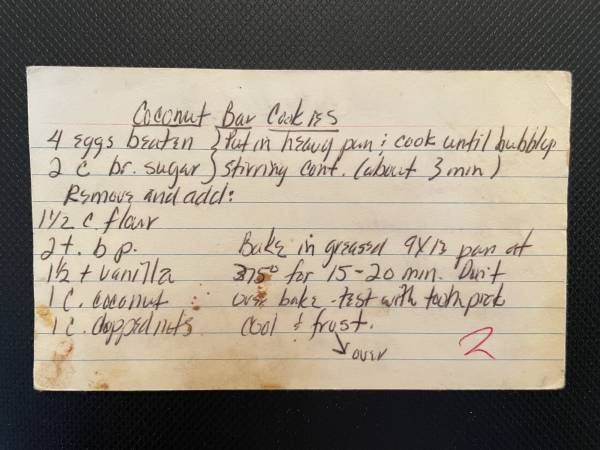 Coconut Bar Cookies
4 eggs beaten } Put in heavy pan & cook until bubbly
2 c br. sugar } stirring cont. (about 3 min)
Remove and add:
1 1/2 c. flour
2 t. b p. Bake in greased 9x13 pan at
1 1/2 t vanilla 375° for 15-20 min. Don't
1 c. coconut over bake - test with toothpick
1 c. chopped nuts cool & frost.
over
2